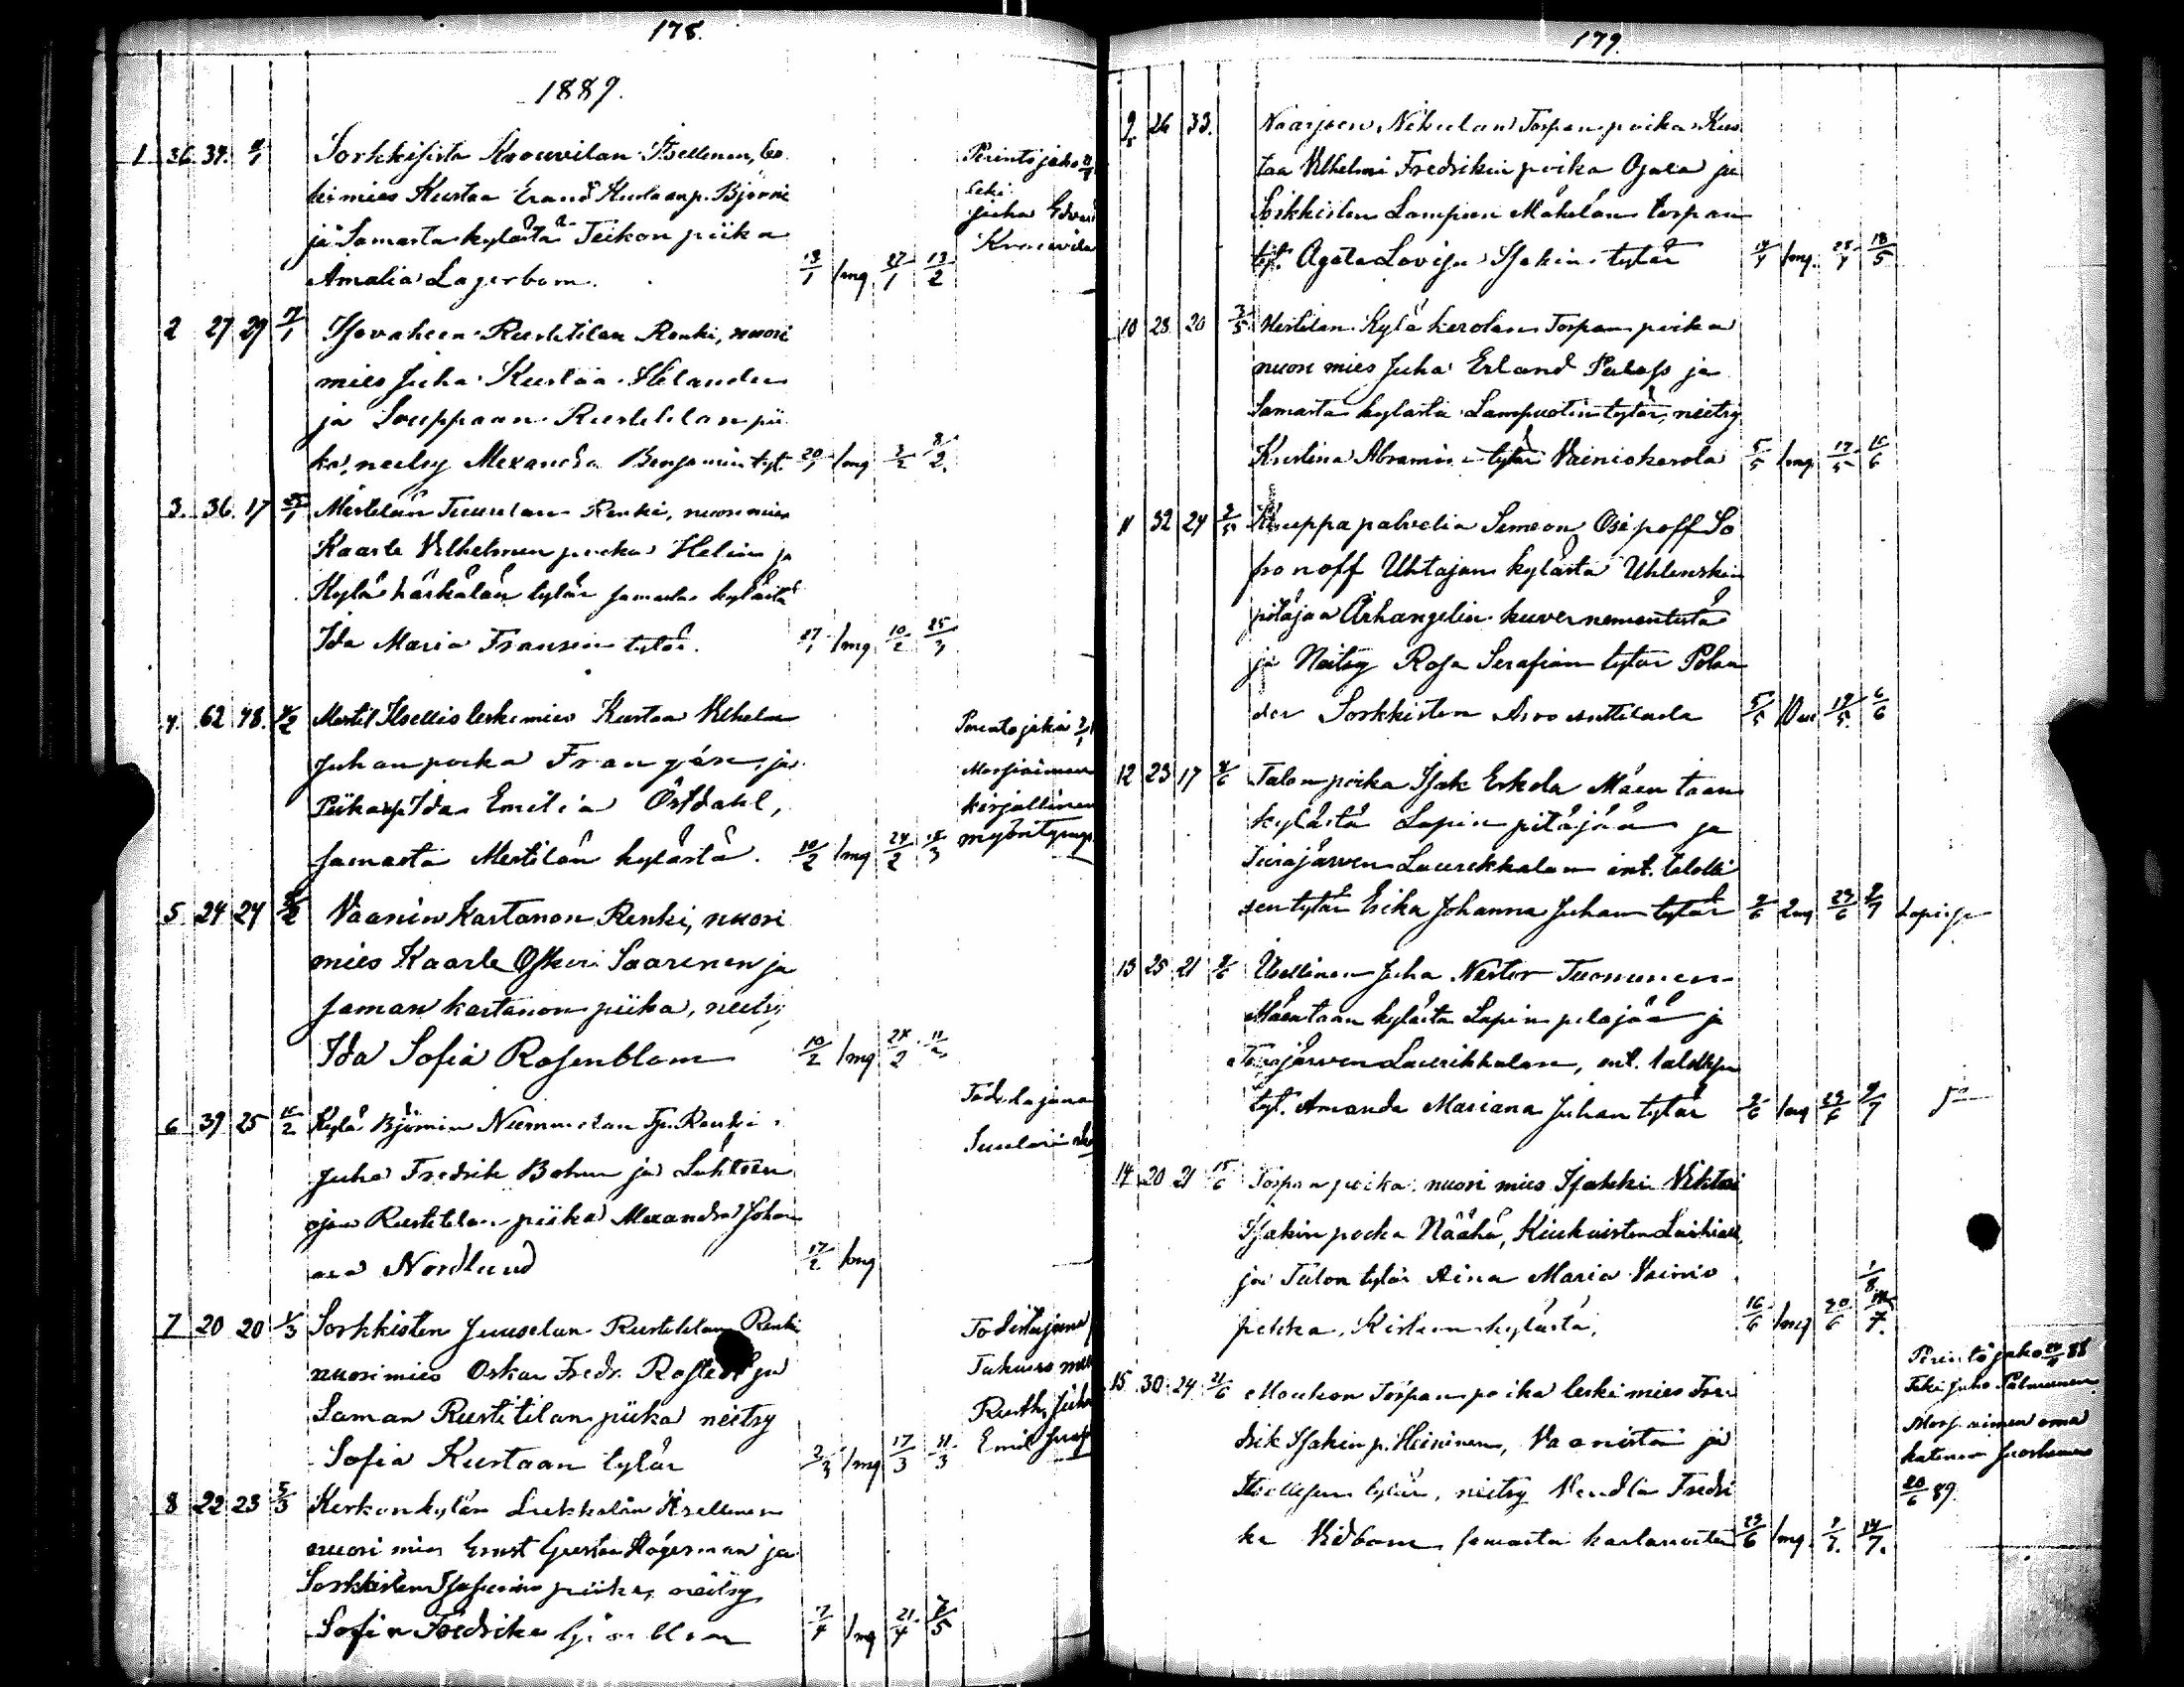 178.
1889.
1 36 34. Sorkkisista Krouvilan Itsellinen, les
kimies Kustaa Erand Kustaan p. Björni
ja Samasta kylästä Teikon piika
Amalia Lagerbom. 13/1 1mg 27/1 13/2
Perintöjako
teki
Juha Edvard
Krouvila
2 27 29 Isovaheen Rustitilan Renki, nuori
mies Juha Kustaa Helander
ja Souppaan Rustitilan pii
ka, neitsy Alexandra Benjamin tyt. 20/1 1mg 3/2 8/2.
3. 36. 17 Mestilän Tuuulan Renki, nuori mies
Kaarle Vilhelmin poika Helin ja
Kylä härkälän tytär samasta kylästä
Ida Maria Fransin tytär. 27/1 1mg 10/2 25/3
4. 62 48. Mestil Itsellis leskimies Kustaa Vilhelm
Juhan poika Frangén, ja
Piika Ida Emilia Östdahl,
samasta Mestilän kylästä. 10/2 1mg 24/2 15/3
Perintöjako
Morsiaimen
kirjallinen
myöntymys
5 24 24 Vaanin Kartanon Renki, nuori
mies Kaarle Oskari Saarinen ja
saman kartanon piika, neitsy
Ida Sofia Rosenblom 10/2 1mg 24/2
6 39 25 15/2 Kylä Björnin Nummelan Tp. Renki
Juha Fredrik Bohm ja Lähteen
ojan Rustitilan piika Alexandra Johan
na Nordlund 17/2 1mg
Todistajana
7 20 20 1/3 Sorkkisten Juuselan Rustitilan Renki
nuorimies Oskar Fredr. Rostedt ja
Saman Rustitilan piika neitsy
Sofia Kustaan tytär 3/3 1mg 17/3 31/3
Todistajana
Ruth, Juha
Emil
8 22 23 5/3 Kirkonkylän Liekkalan Itsellinen
nuori mies Ernst Gustaa Högerman ja
Sorkkisten piika, neitsy
Sofia Fredrika 7/4 1mg 21/4 7/5
179.
9. 26 33. Naarjoen Nikulan Torpan poika Kus
taa Vilhelmi Fredrikin poika Ojala ja
Sorkkisten Lampsen Mäkelän torpan
tyt. Agata Lovisa Isakin tytär 14/4 1mg. 28/4 18/5
10 28 20 3/5 Mestilän Kylä kerolan Torpan poika
nuori mies Juha Erland Palass ja
Samasta kylästä Lampuotin tytär, neitsy
Kustina Abramin tytär Vainiokerola 5/5 1mg 19/5 15/6
11 32 24 3/5 Kauppapalvelia Semeon Osipoff So
fronoff Uhtajan kylästä Uhlenskin
pitäjää Arhangelin kuvernementistä
ja Neitsy Rosa Serafian tytär Polan
der Sorkkisten 5/5 19/5 6/6
12 23 17 Talonpoika Isak Erkola Mäentaan
kylästä Lapin pitäjää ja
Turajärven Laurikkalan ent. talolli
sen tytär Erika Johanna Juhan tytär 9/6 2mg 23/6 9/7
13 25 21 Itsellinen Juha Nestor Tuominen
Mäentaan kylästä Lapin pitäjää ja
Turajärven Laurikkalan, ent. talollisen
tyt. Amanda Mariana Juhan tytär 9/6 1mg 23/6 9/7
14 20 21 15/6 Torpan poika, nuori mies Isakki Viktori
Isakin poika Näähä, Kiukaisten
ja Talon tytär Aina Maria Vainio
pekka, Kirkonkylästä, 16/6 1mg 30/6 1/8
15. 30. 24 21/6 Moukon Torpan poika leskimies Fre
drik Isakin p. Heininen, Vaanista ja
Itsellisen tytär, neitsy Vendla Fredri
ka Vidbom samasta kartanosta 23/6 1mg. 7/7. 14/7.
Perintöjako 88
Teki Juho Palmunen
Morsiaimen oma
katinen suostumus
20/6 89.